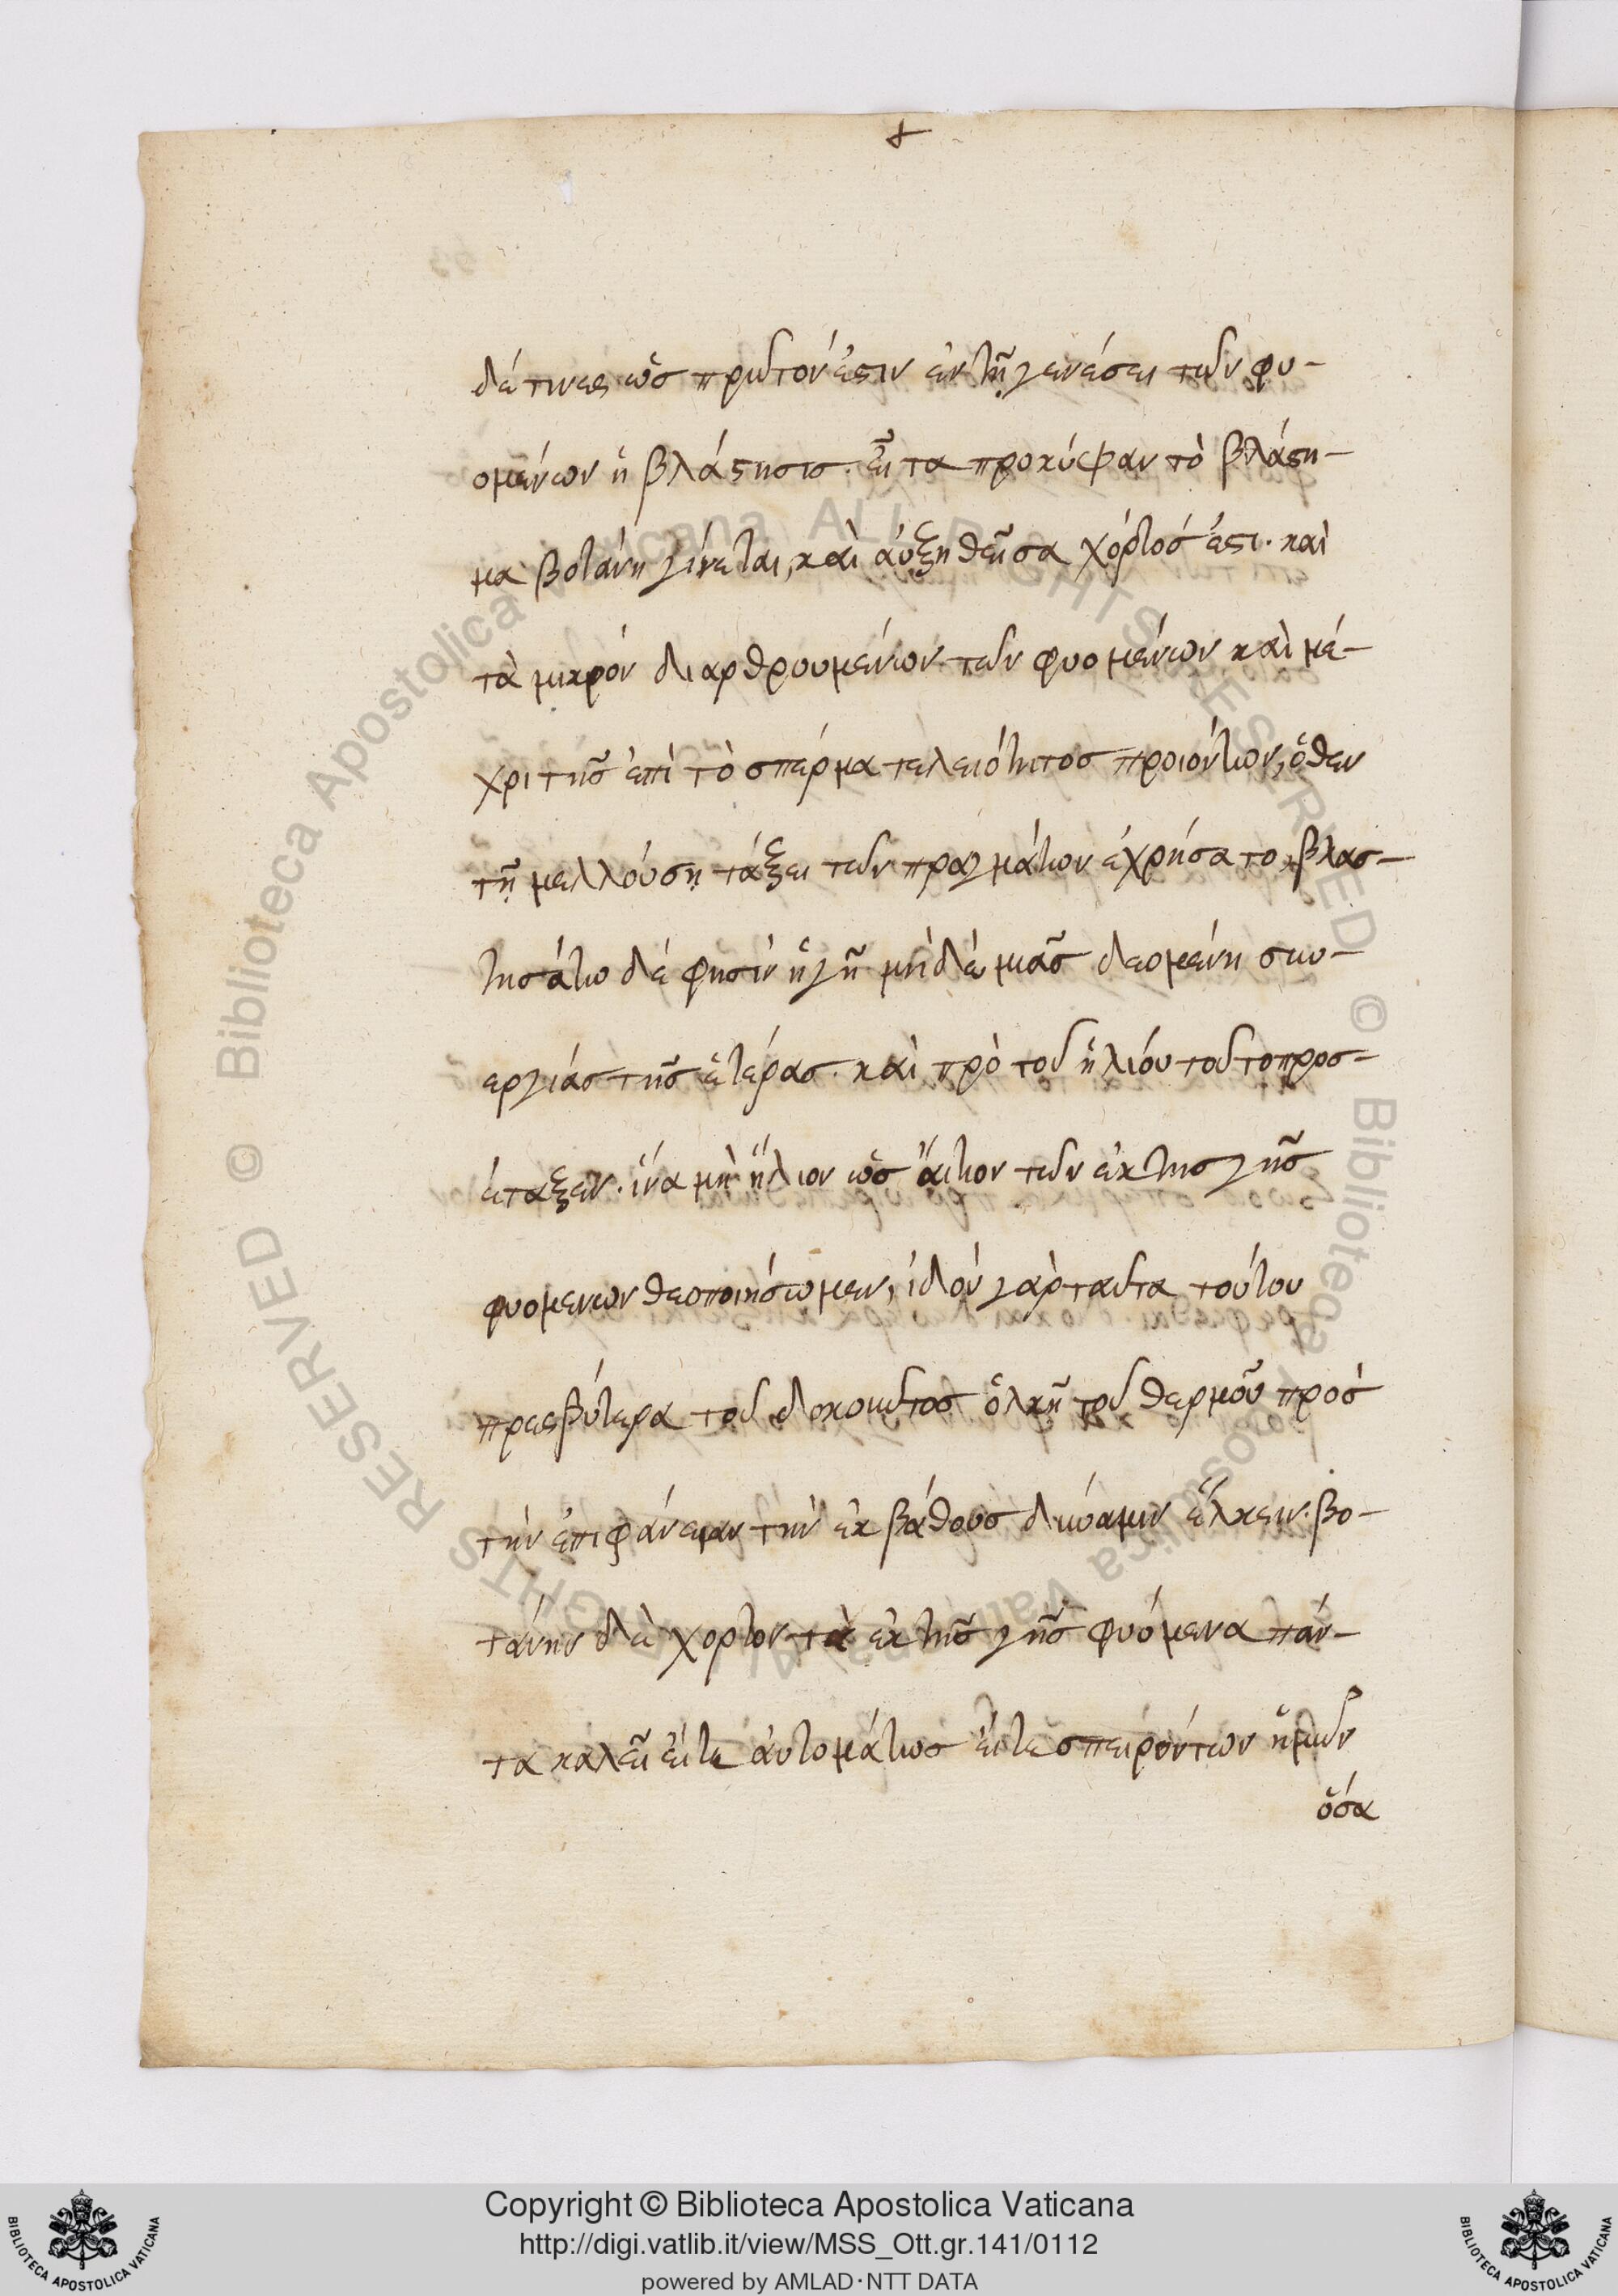 +
δέ τινες ὡς πρῶτόν ἐστιν ἐν τῇ γενέσει τῶν φυ-
ομένων ἡ βλάστησις. εἶτα προκύψαν τὸ βλάστη-
μα βοτάνη γίνεται, καὶ αὐξηθεῖσα χόρτός ἐστι. καὶ
τὰ μικρόν διαρθρουμένων τῶν φυομένων καὶ μέ-
χρι τῆς ἐπὶ τὸ σπέρμα τελειότητος προιόντων, ὅθεν
τῇ μελλούσῃ τάξει τῶν πραγμάτων ἐχρήσατο, βλασ-
τησάτω δέ φησίν ἡ γῆ μηδὲ μιᾶς δεομένη συν-
εργιάς τῆς ἑτέρας. καὶ πρὸ τοῦ ἡλιόυ τοῦτο προσ-
έταξεν. ἵνα μὴ ἥλιον ὡς ἄιτιον τῶν ἐκ της γῆς
φυομενων θεοποιησωμεν, ἰδού γάρ ταῦτα τούτου
πρεσβύτερα τοῦ δοκουῦτος ὁλκῇ τοῦ θερμοῦ πρός
τὴν ἐπιφάνειαν τὴν ἐκ βάθους δύναμιν ἕλκειν. βο-
τάνην δὲ χορτον τὰ ἐκ τῆς γῆς φυόμενα πάν-
τα καλεῖ εἴτε ἀυτομάτως εἴτε σπειρόντων ἡμῶν
ὅσα
Copyright © Biblioteca Apostolica Vaticana
http://digi.vatlib.it/view/MSS_Ott.gr.141/0112
powered by AMLAD·NTT DATA